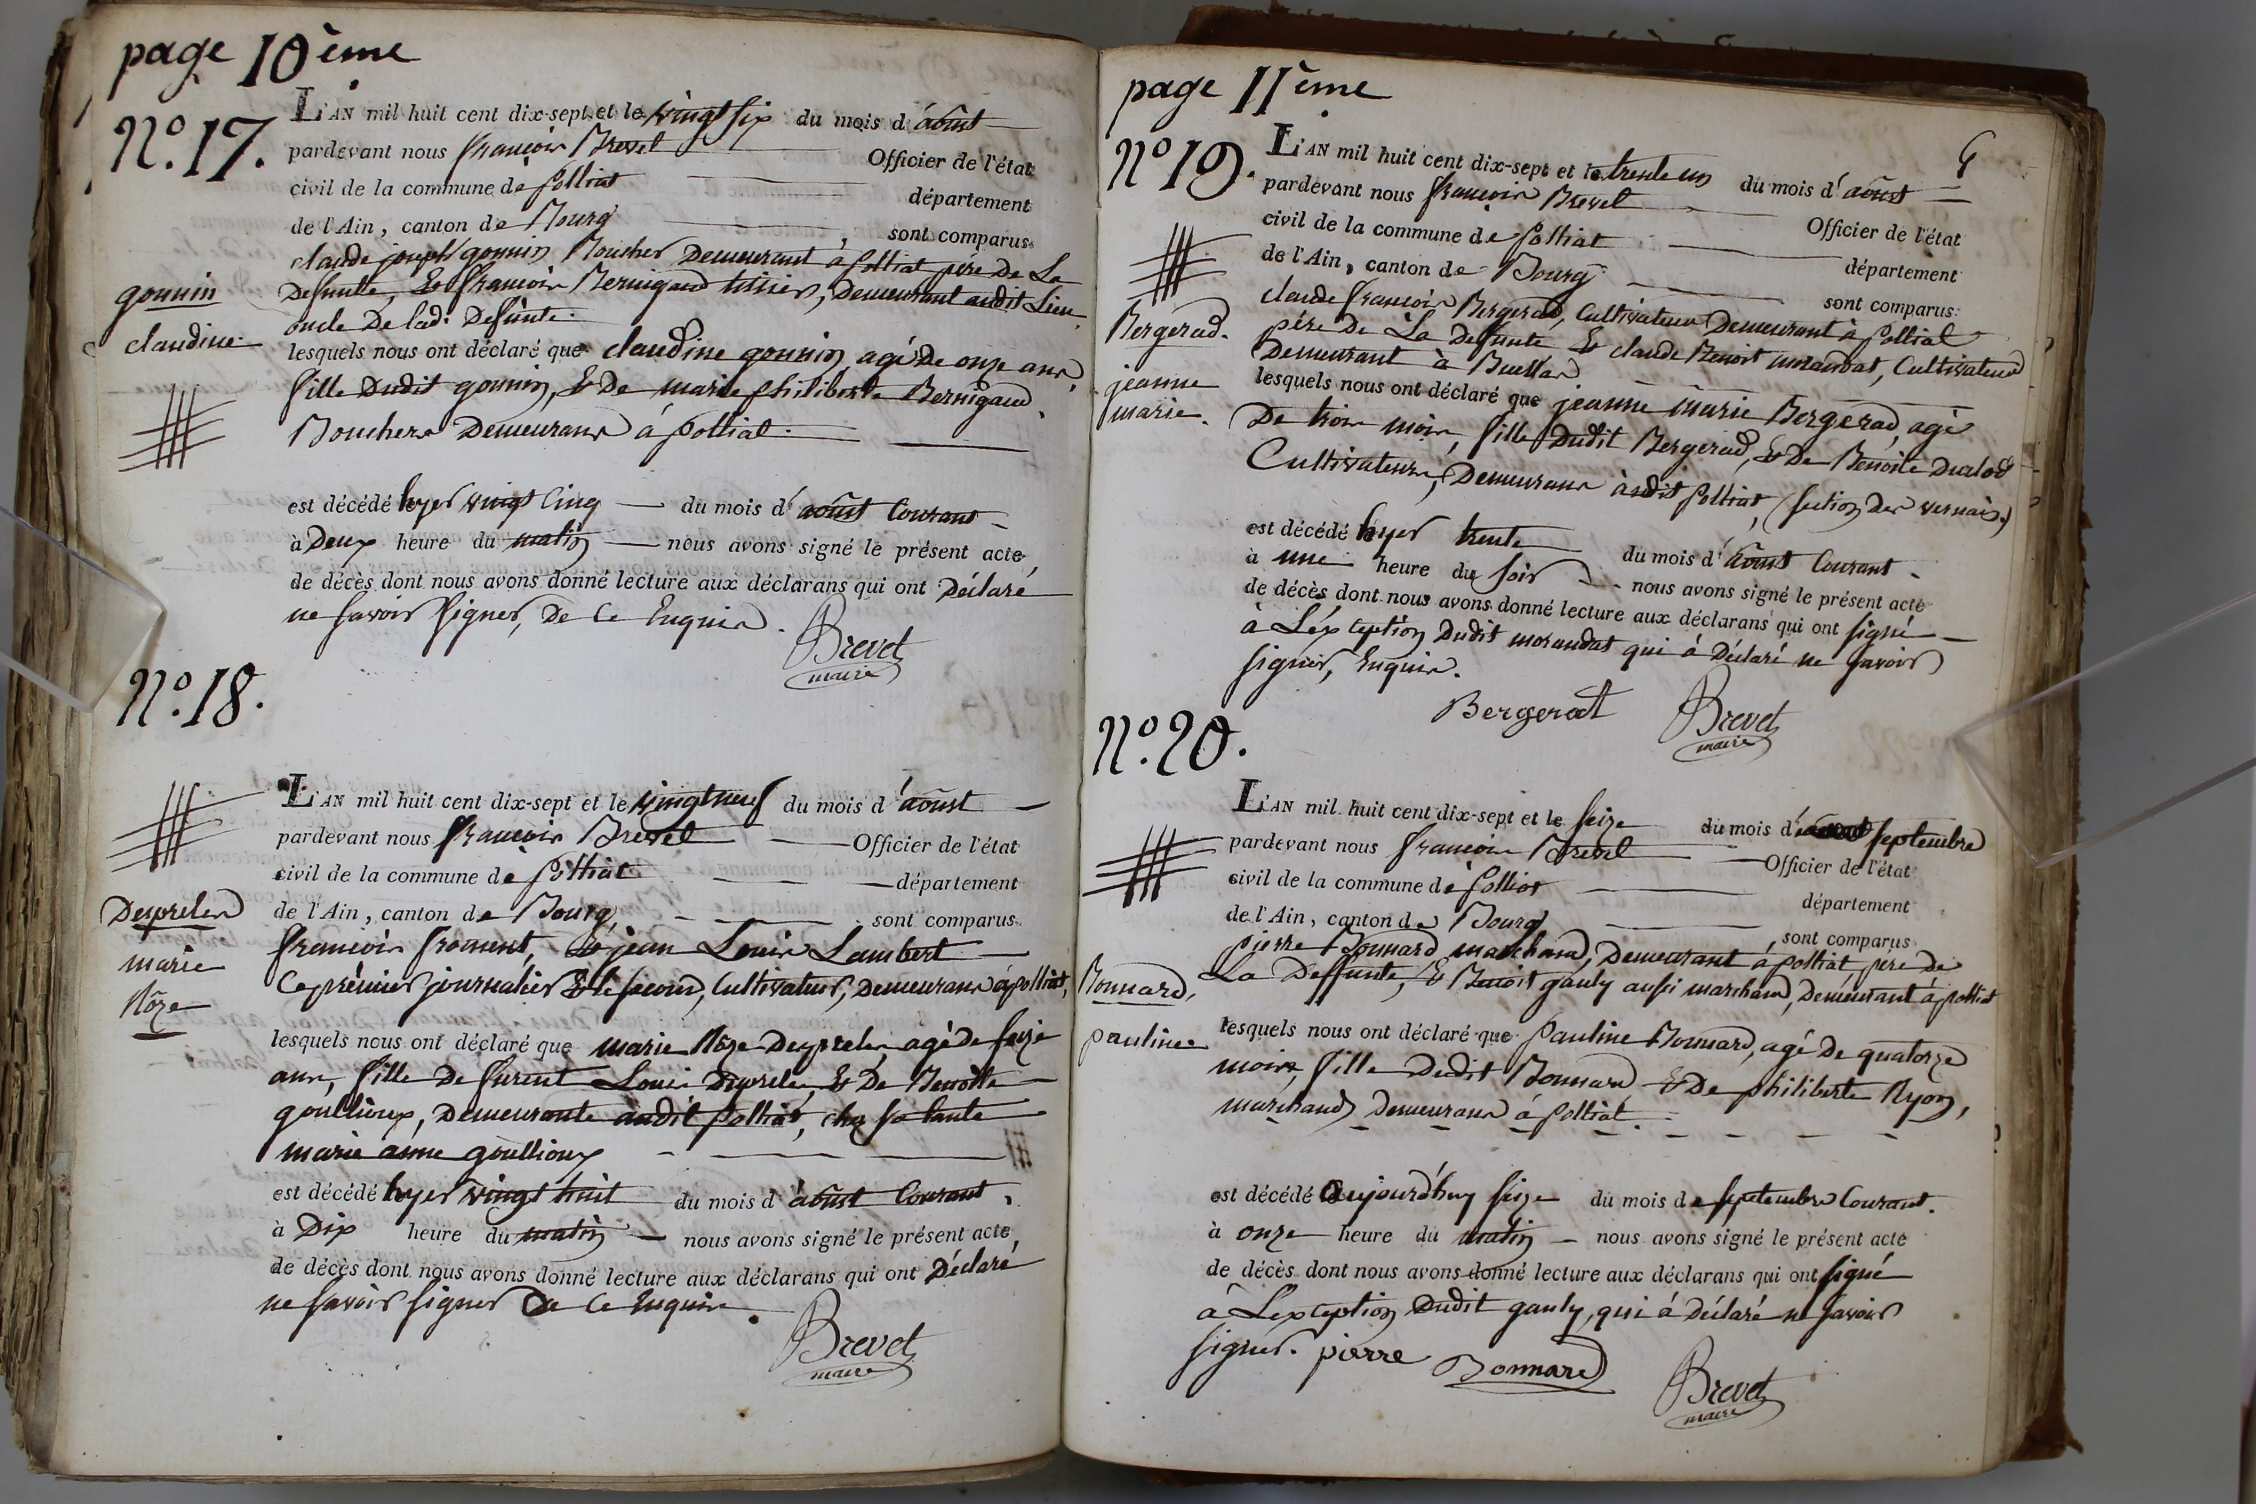 page 10ème
N.º 17.
L'AN mil huit cent dix-sept et le vingt six du mois d'aoûst
pardevant nous françois Brevet Officier de l'état
civil de la commune de polliat département
de l'Ain, canton de Bourg, sont comparus
claude joseph gonnin Boucher Demeurant à polliat père De La
Defunte, & françois Bernigaud titsier, Demeurant audit Lieu,
oncle De lad. Defunte.
gonnin
claudine
lesquels nous ont déclaré que claudine gonnin agé de onze ans,
fille Dudit gonnin, & De marie philiberte Bernigaud,
Bouchers Demeurans à polliat.
est décédé hyer vingt cinq du mois d'aoûst Courant
à Deux heure du matin nous avons signé le présent acte
de décès dont nous avons donné lecture aux déclarans qui ont Déclaré
ne savoir signer, De Ce Enquis.
Brevet
maire
N.º 18.
L'AN mil huit cent dix-sept et le vingt neuf du mois d'aoûst
pardevant nous françois Brevet Officier de l'état
civil de la commune de polliat département
de l'Ain, canton de Bourg, sont comparus
Despreles
marie
Rôze
françois froment, & jean Louis Lambert
Ce prémier journalier & le second, Cultivateur, Demeurans à polliat,
lesquels nous ont déclaré que marie Rôze Despreles, agé de seize
ans, fille De furent Louis Desprele, & De Benoitte
goullioux, Demeurante audit polliat, chez sa tante
marie anne goullioux
est décédé hyer vingt huit du mois d'aoûst Courant,
à Dix heure du matin nous avons signé le présent acte
de décès dont nous avons donné lecture aux déclarans qui ont Déclaré
ne savoir signer De Ce Enquis.
Brevet
maire
page 11ème
6
Nº 19.
L'AN mil huit cent dix-sept et le trente un du mois d'aoûst
pardevant nous françois Brevet Officier de l'état
civil de la commune de polliat département
de l'Ain, canton de Bourg sont comparus
claude françois Bergerad, Cultivateur Demeurant à polliat
père De La Defunte & claude Benoit morandat, Cultivateur
Demeurant à Buellas
Bergerad.
jeanne
marie.
lesquels nous ont déclaré que jeanne marie Bergerad, agé
De trois mois, fille Dudit Bergerad, & De Benoite Dualod
Cultivateurs, Demeurans àudit polliat, (section Des vernais.)
est décédé hyer trente du mois d'aoûst Courant
à une heure du soir nous avons signé le présent acte
de décès dont nous avons donné lecture aux déclarans qui ont signé
à L'éxception Dudit morandat qui à Déclaré ne savoir
signer, Enquis.
Bergerat Brevet
maire
Nº. 20.
L'AN mil huit cent dix-sept et le seize du mois d septembre
pardevant nous françois Brevet Officier de l'état
civil de la commune de polliat département
de l'Ain, canton de Bourg, sont comparus
pierre Bonnard marchand, Demeurant à polliat, père De
La Deffunte, & Benoit gauly aussi marchand, Demeurant à polliat
Bonnard,
pauline
lesquels nous ont déclaré que pauline Bonnard, agé De quatorze
mois, fille Dudit Bonnard & De philiberte Ryon,
marchands Demeurans à polliat.
est décédé aujourd'huy seize du mois de septembre Courant.
à onze heure du matin nous avons signé le présent acte
de décès dont nous avons donné lecture aux déclarans qui ont signé
à L'exception Dudit gauly, qui à Déclaré ne savoir
signer. pierre Bonnard
Brevet
maire